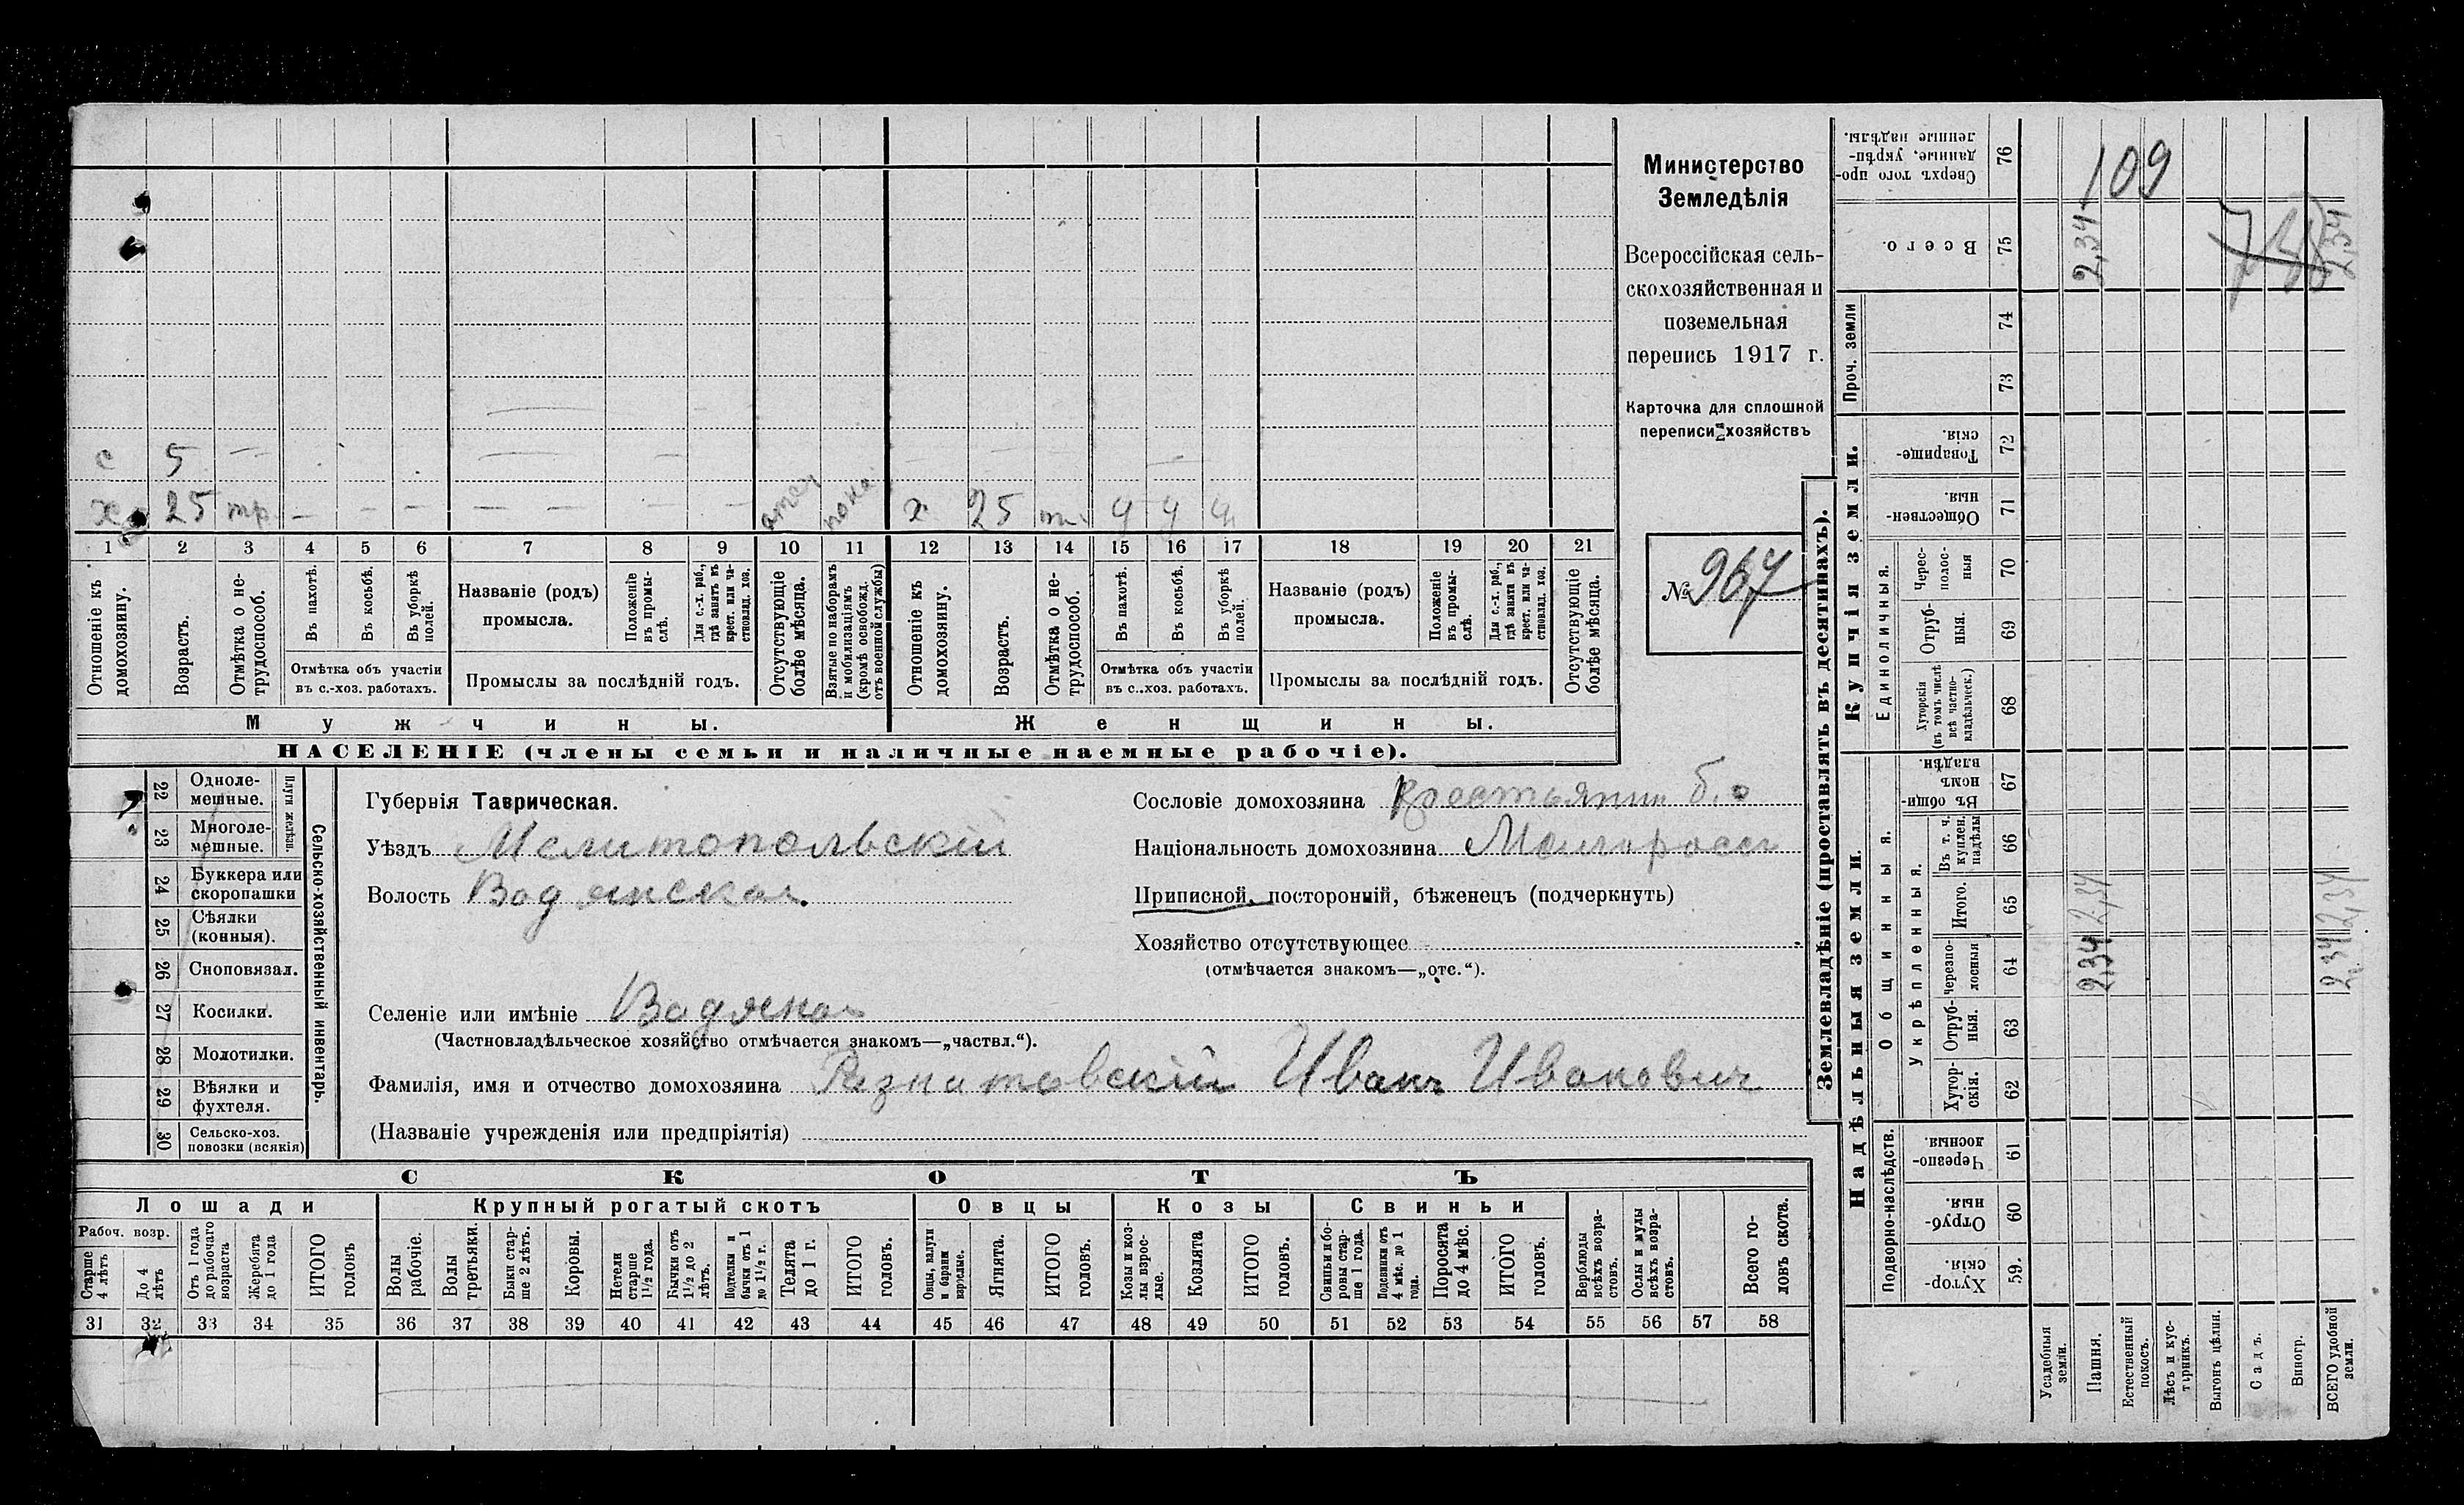 с 5 — — — —
х 25 тр. — — — — — — х 25 ч ч ч
1 2 3 4 5 6 7 8 9 10 11 12 13 14 15 16 17 18 19 20 21
Отношеніе къ домохозяину.
Возрастъ.
Отмѣтка о не-трудоспособ.
Въ пахотѣ.
Въ косьбѣ.
Въ уборкѣ полей.
Отмѣтка объ участіи
въ с.-хоз. работахъ.
Названіе (родъ)
промысла.
Положеніе въ промы-слѣ.
Для с.-х. раб., гдѣ занятъ въ крест. или ча-стновлад. хоз.
Промыслы за послѣдній годъ.
Отсутствующіе болѣе мѣсяца.
Взятые по наборамъ и мобилизаціямъ (кромѣ освобожд. отъ военной службы)
Отношеніе къ домохозяину.
Возрастъ.
Отмѣтка о не-трудоспособ.
Въ пахотѣ.
Въ косьбѣ.
Въ уборкѣ полей.
Отмѣтка объ участіи
въ с..хоз. работахъ.
Названіе (родъ)
промысла.
Положеніе въ промы-слѣ.
Для с.-х. раб., гдѣ занята въ крест. или ча-стновлад. хоз.
Промыслы за послѣдній годъ.
Отсутствующіе болѣе мѣсяца.
Мужчины. Женщины.
НАСЕЛЕНІЕ (члены семьи и наличные наемные рабочіе).
Министерство
Земледѣлія
Всероссійская сель-
скохозяйственная и
поземельная
перепись 1917 г.
Карточка для сплошной
переписи хозяйствъ
№ 967
Сельско-хозяйственный инвентарь.
Плуги желѣзн.
22 Одноле-мешные.
23 Многоле-мешные.
24 Буккера или скоропашки
25 Сѣялки (конныя).
26 Сноповязал.
27 Косилки.
28 Молотилки.
29 Вѣялки и фухтеля.
30 Сельско-хоз. повозки (всякія)
Губернія Таврическая.
Уѣздъ Мелитопольскій
Волость Водянская.
Селеніе или имѣніе Водяное
(Частновладѣльческое хозяйство отмѣчается знакомъ—„частвл.“).
Фамилія, имя и отчество домохозяина Иванъ Ивановичъ
(Названіе учрежденія или предпріятія)
Сословіе домохозяина Крестьянин б.о
Національность домохозяина Малоросс
Приписной, посторонній, бѣженецъ (подчеркнуть)
Хозяйство отсутствующее
(отмѣчается знакомъ—„отс.“).
СКОТЪ
Лошади Крупный рогатый скотъ Овцы Козы Свиньи
Рабоч. возр.
Старше 4 лѣтъ
До 4 лѣтъ
Отъ 1 года до рабочаго возраста
Жеребята до 1 года
ИТОГО головъ
Волы рабочіе.
Волы третьяки.
Быки стар-ше 2 лѣтъ.
Коровы.
Нетели старше 1½ года.
Бычки отъ 1½ до 2 лѣтъ.
Подтелки и бычки отъ 1 до 1½ г.
Телята до 1 г.
ИТОГО головъ.
Овцы, валухи и бараны взрослые.
Ягнята.
ИТОГО головъ.
Козы и коз-лы взрос-лые.
Козлята
ИТОГО головъ.
Свиньи и бо-ровы стар-ше 1 года.
Подсвинки отъ 4 мѣс. до 1 года.
Поросята до 4 мѣс.
ИТОГО головъ.
Верблюды всѣхъ возра-стовъ.
Ослы и мулы всѣхъ возра-стовъ.
Всего го-ловъ скота.
31 32 33 34 35 36 37 38 39 40 41 42 43 44 45 46 47 48 49 50 51 52 53 54 55 56 57 58
Землевладѣніе (проставлять въ десятинахъ).
Надѣльныя земли.
Купчія земли.
Проч. земли
Подворно-наслѣдств.
Общинныя.
Укрѣпленныя.
Единоличныя.
Хутор-скія. 59.
Отруб-ныя. 60
Черезпо-лосныя 61
Хутор-скія. 62
Отруб-ныя. 63
черезпо-лосныя 64
Итого. 65
Въ т. ч. куплен. надѣлы 66
Въ общи-номъ владѣн. 67
Хуторскія (въ томъ числѣ всѣ частно-владѣльческ.) 68
Отруб-ныя. 69
Черес-полос-ныя 70
Обществен-ныя. 71
Товарище-скія. 72
73
74
Всего. 75
Сверхъ того про-данные, укрѣп-ленные надѣлы. 76
Усадебныя земли.
Пашня. 2,34 2,34 2,34
Естественный покосъ.
Лѣсъ и кус-тарникъ.
Выгонъ цѣлин.
Садъ.
Виногр.
ВСЕГО удобной земли. 2,34 2,34 2,34
109